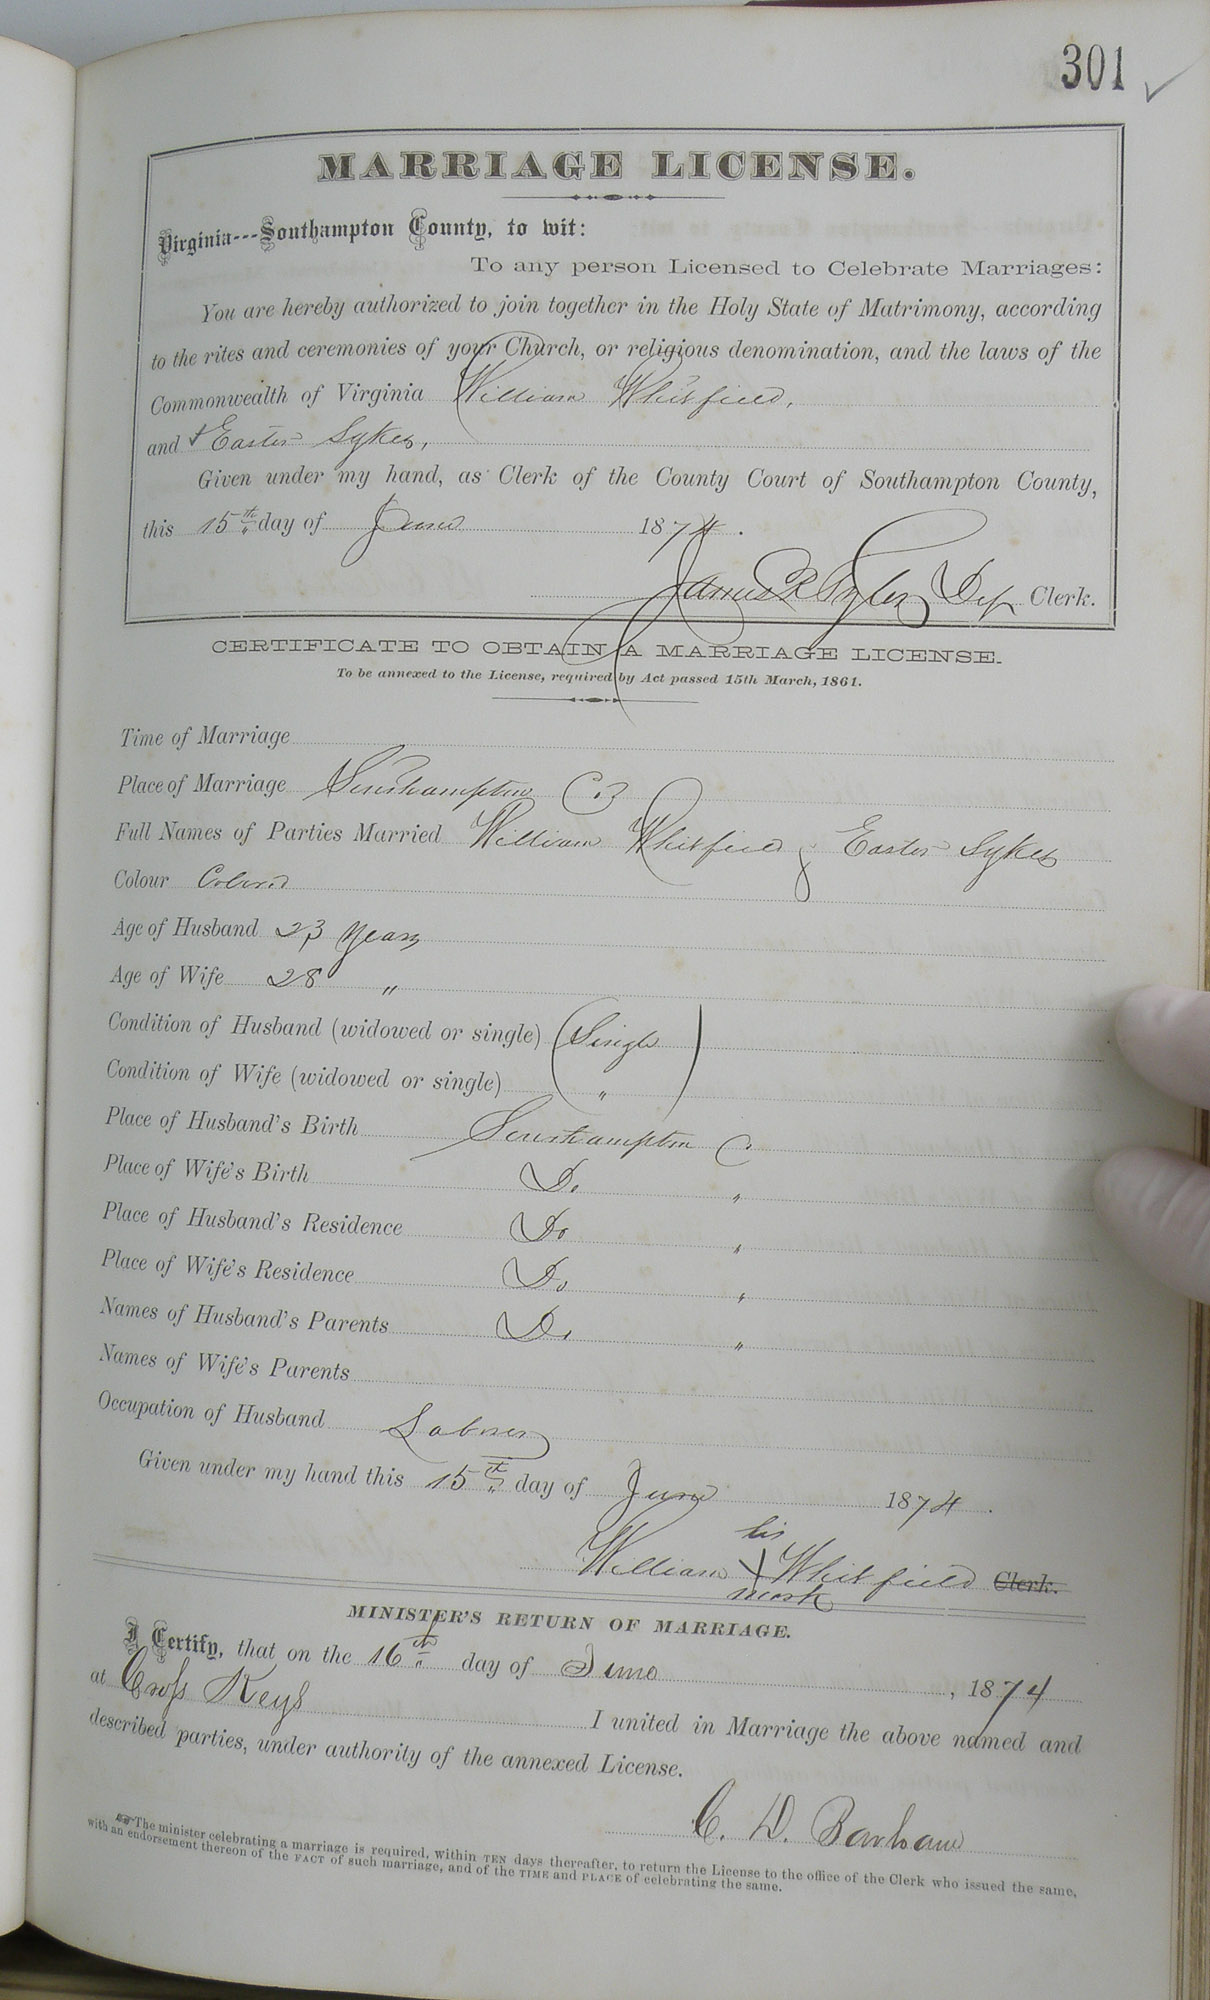 301 ✓
MARRIAGE LICENSE.
Virginia---Southampton County, to wit:
To any person Licensed to Celebrate Marriages:
You are hereby authorized to join together in the Holy State of Matrimony, according
to the rites and ceremonies of your Church, or religious denomination, and the laws of the
Commonwealth of Virginia William Whitfield,
and & Easter Sykes,
Given under my hand, as Clerk of the County Court of Southampton County,
this 15th day of June 1874.
James R Tyler Dep Clerk.
CERTIFICATE TO OBTAIN A MARRIAGE LICENSE.
To be annexed to the License, required by Act passed 15th March, 1861.
Time of Marriage
Place of Marriage Southampton Co
Full Names of Parties Married William Whitfield & Easter Sykes
Colour Colored
Age of Husband 23 years
Age of Wife 28 "
Condition of Husband (widowed or single) (Single)
Condition of Wife (widowed or single) "
Place of Husband's Birth Southampton C
Place of Wife's Birth Do "
Place of Husband's Residence Do "
Place of Wife's Residence Do "
Names of Husband's Parents Do "
Names of Wife's Parents
Occupation of Husband Laborer
Given under my hand this 15th day of June 1874.
his
William X Whitfield Clerk.
mark
MINISTER'S RETURN OF MARRIAGE.
I Certify, that on the 16th day of June, 1874
at Cross Keys I united in Marriage the above named and
described parties, under authority of the annexed License.
C. D. Barham
The minister celebrating a marriage is required, within TEN days thereafter, to return the License to the office of the Clerk who issued the same,
with an endorsement thereon of the FACT of such marriage, and of the TIME and PLACE of celebrating the same.